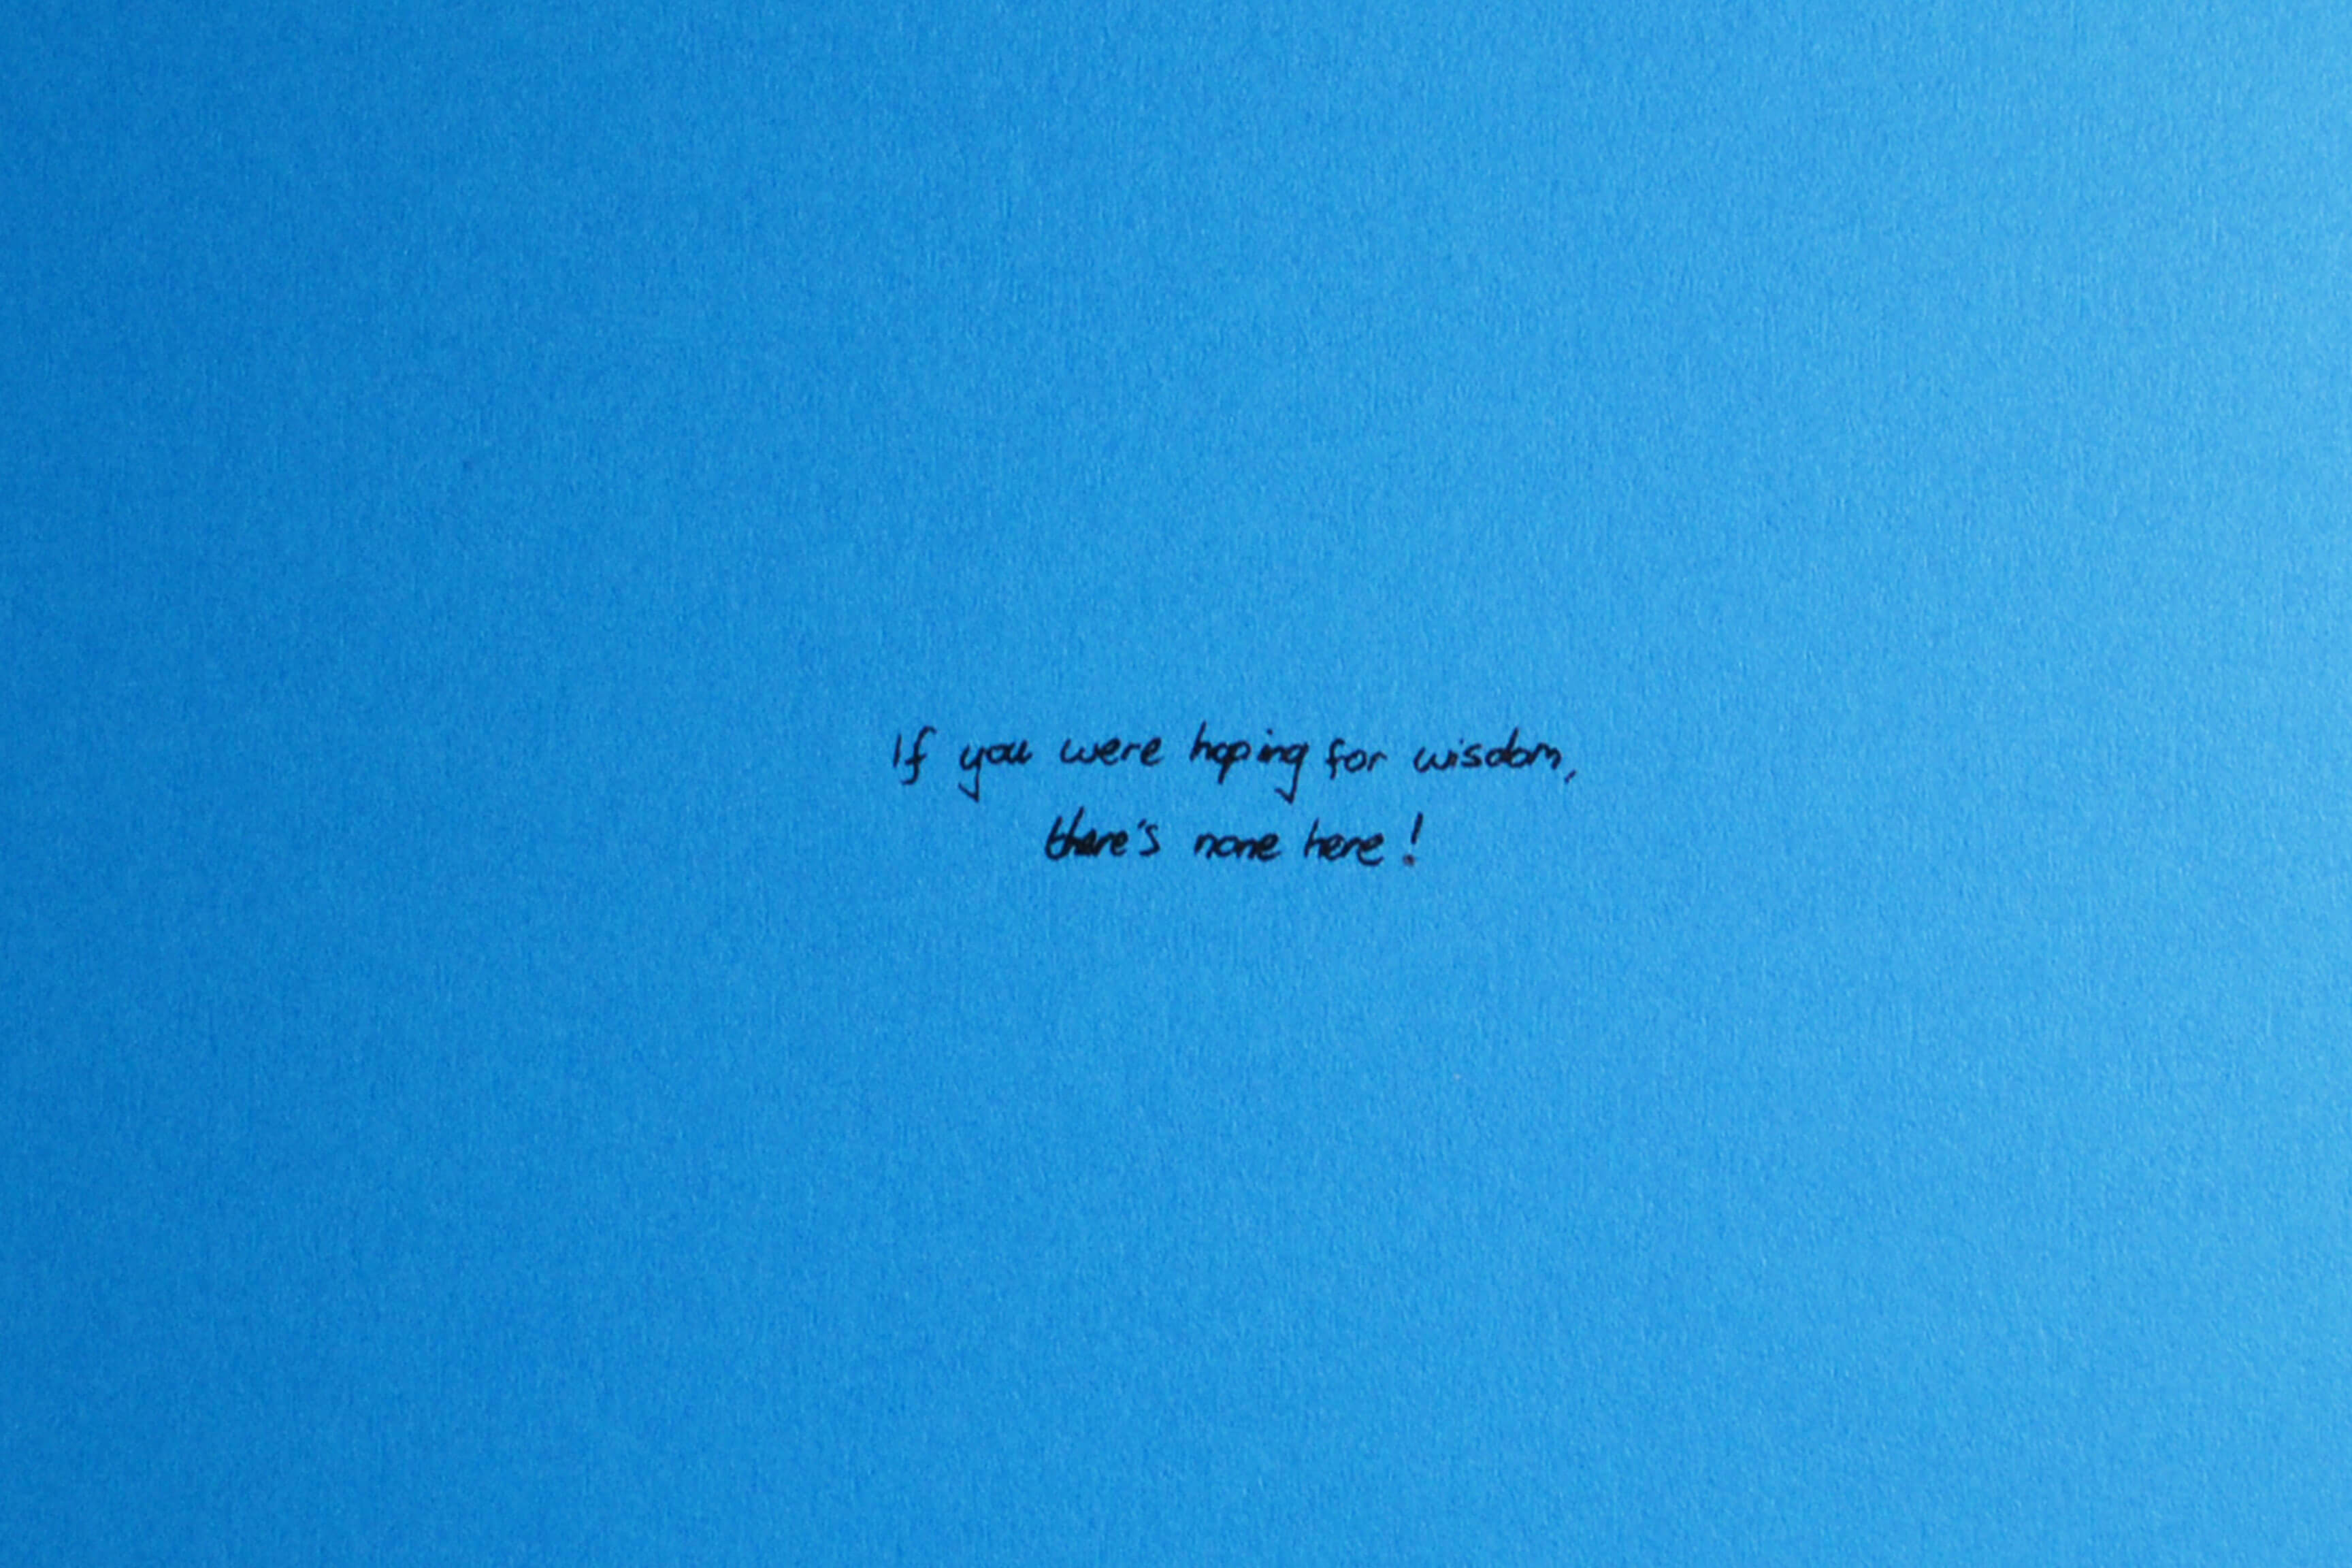 If you were hoping for wisdom,
there's none here!